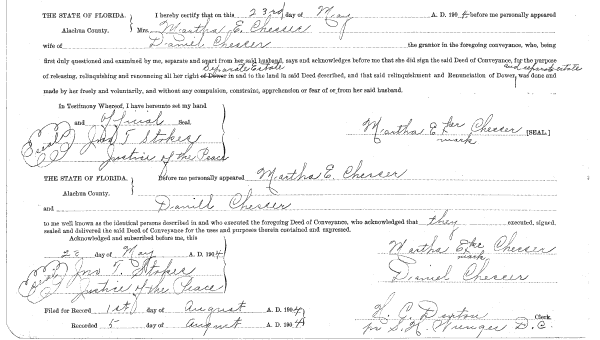 THE STATE OF FLORIDA. I hereby certify that on this 23rd day of May A. D. 1904 before me personally appeared
Alachua County. Mrs. Martha E. Chesser
wife of Daniel Chesser the grantor in the foregoing conveyance, who, being
first duly questioned and examined by me, separate and apart from her said husband, says and acknowledges before me that she did sign the said Deed of Conveyance, for the purpose
Separate Estate and separate estate
of releasing, relinquishing and renouncing all her right of Dower in and to the land in said Deed described, and that said relinquishment and Renunciation of Dower, was done and
made by her freely and voluntarily, and without any compulsion, constraint, apprehension or fear of or from her said husband.
In Testimony Whereof, I have hereunto set my hand
and official Seal.
Seal Jno T Stokes Martha E her Chesser [SEAL]
mark
Justice of the Peace
THE STATE OF FLORIDA. Before me personally appeared Martha E. Chesser
Alachua County.
and Daniell Chesser
to me well known as the identical persons described in and who executed the foregoing Deed of Conveyance, who acknowledged that they executed, signed,
sealed and delivered the said Deed of Conveyance for the uses and purposes therein contained and expressed.
Acknowledged and subscribed before me, this
23 day of May A. D. 1904 Martha E her Chesser
mark
Seal Jno T. Stokes Daniel Chesser
Justice of the Peace
Filed for Record 1st day of August A. D. 1904 Clerk.
Recorded 5 day of August A. D. 1904 D. C.